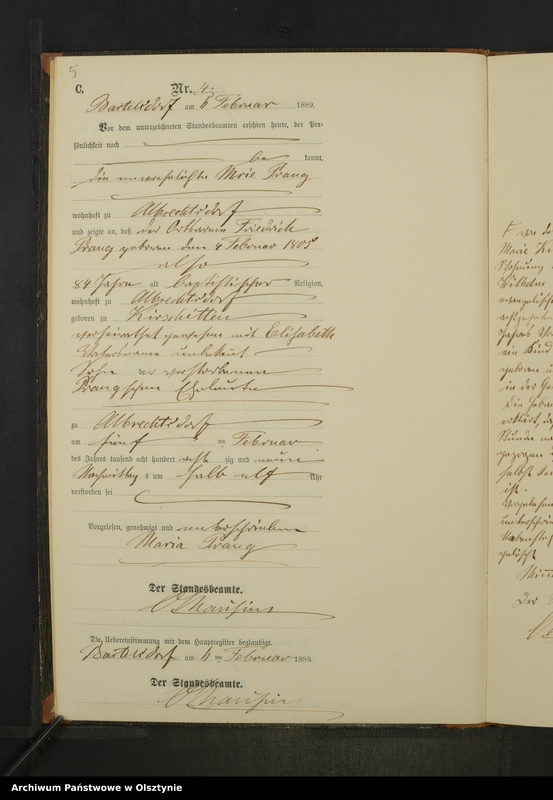 5
C.
Nr. 4.
Bartelsdorf am 6 Februar 1889.
Vor dem unterzeichneten Standesbeamten erschien heute, der Per-
sönlichkeit nach
be kannt,
die unverehelichte Marie Prang
wohnhaft zu Albrechtsdorf
und zeigte an, daß der Ortsarme Friedrich
Prang geboren den 4 Februar 1805
also
84 Jahre alt baptistischer Religion,
wohnhaft zu Albrechtsdorf
geboren zu Kirschitten
verheirathet gewesen mit Elisabeth
Vatersname unbekannt
Sohn der verstorbenen
Prangschen Eheleute
zu Albrechtsdorf
am fünf ten Februar
des Jahres tausend acht hundert acht zig und neun
Nachmittag s um halb elf Uhr
verstorben sei
Vorgelesen, genehmigt und unterschrieben
Maria Prang
Der Standesbeamte.
Die Uebereinstimmung mit dem Hauptregister beglaubigt.
Bartelsdorf am 6 ten Februar 1889.
Der Standesbeamte.
Marie
Wilhelm
ein Kind
geboren
Stunde
ist.
Der
Archiwum Państwowe w Olsztynie